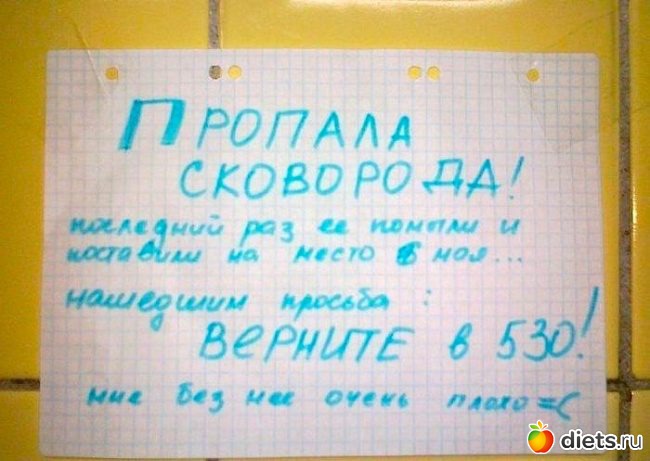 ПРОПАЛА
СКОВОРОДА!
последний раз ее помыли и
поставили на место 6 мая...
нашедшим просьба:
ВЕРНИТЕ в 530!
мне без нее очень плохо =(
diets.ru